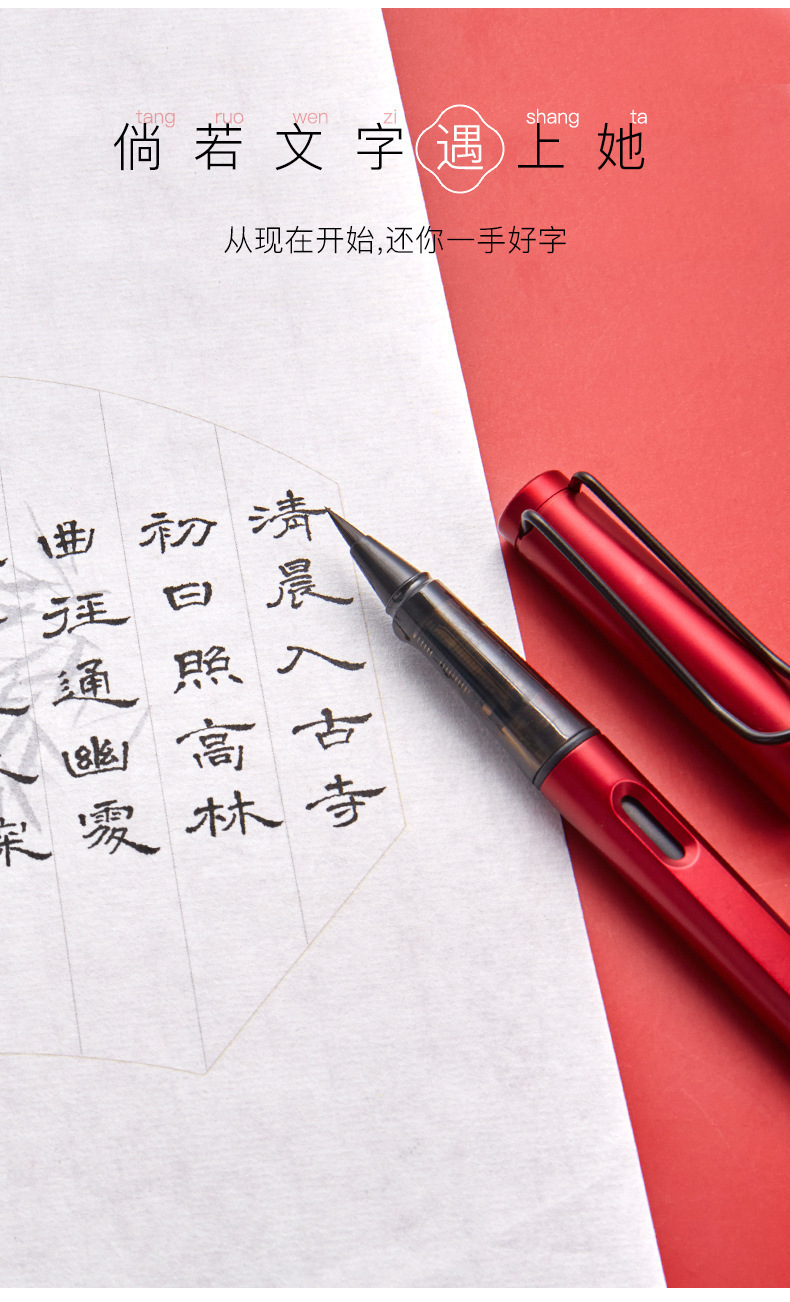 tang ruo wen zi shang ta
倘若文字遇上她
从现在开始,还你一手好字
清晨入古寺
初日照高林
曲径通幽处
深